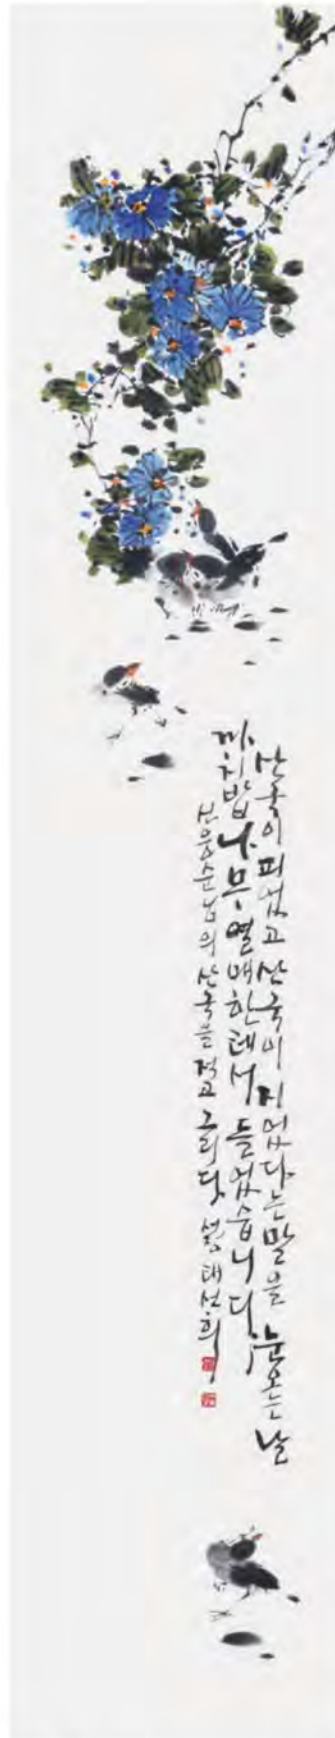 산국이 피었고 산국이 지었다는 말을 눈오는 날
까치밥 나무 열매한테서 들었습니다
신웅순님의 산국을 적고 그리다 태선희